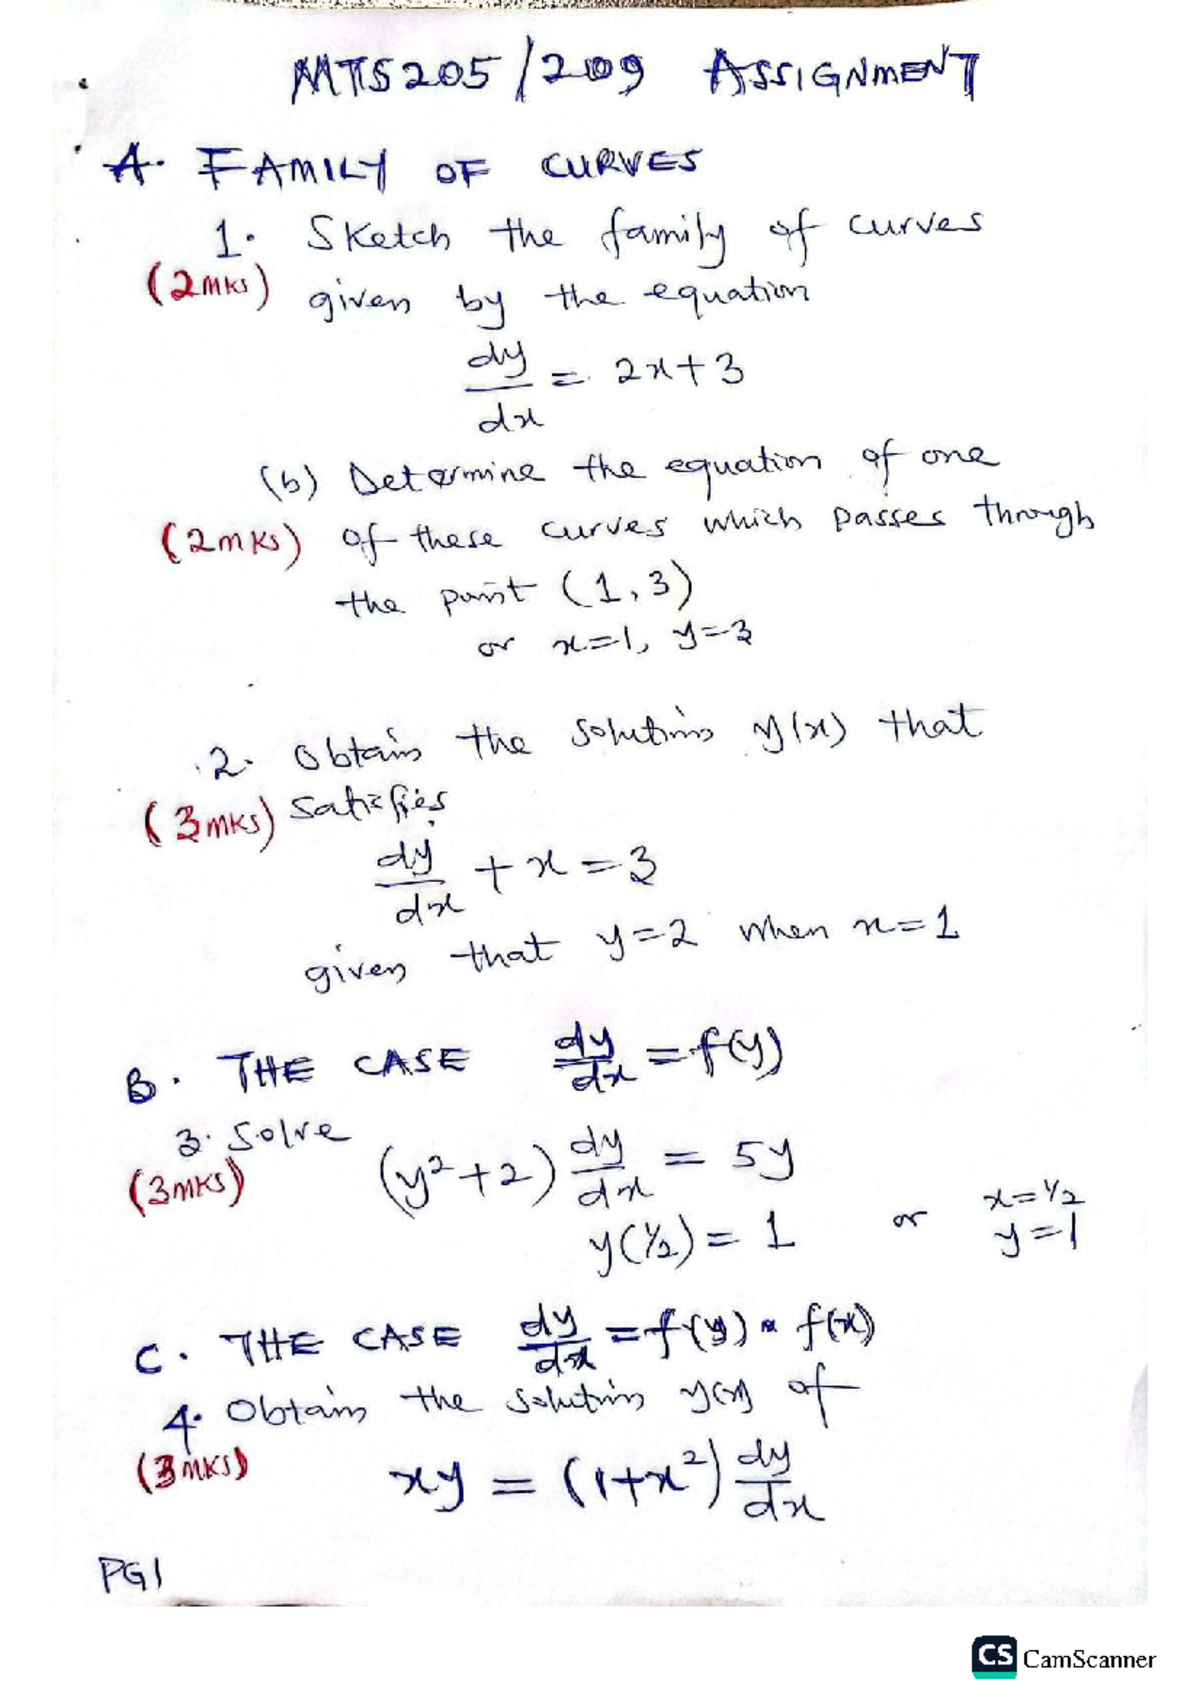 MTS205/209 ASSIGNMENT
A. FAMILY OF CURVES
1. Sketch the family of curves
(2mks) given by the equation
dy/dx = 2x+3
(b) Determine the equation of one
(2mks) of these curves which passes through
the point (1,3)
or x=1, y=3
2. Obtain the solution y(x) that
(3mks) satisfies
dy/dx + x = 3
given that y=2 when x=1
B. THE CASE dy/dx = f(y)
3. Solve
(3mks) (y²+2) dy/dx = 5y
y(½) = 1 or x=½ y=1
C. THE CASE dy/dx = f(y) * f(x)
4. Obtain the solution y(x) of
(3mks) xy = (1+x²) dy/dx
PG1
CS CamScanner